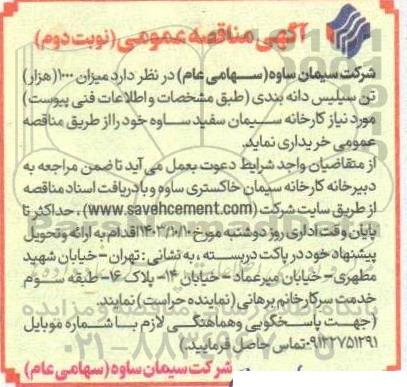 آگهی مناقصه عمومی (نوبت دوم)
شرکت سیمان ساوه (سهامی عام) در نظر دارد میزان ۱۰۰۰ (هزار)
تن سیلیس دانه بندی (طبق مشخصات و اطلاعات فنی پیوست)
مورد نیاز کارخانه سیمان سفید ساوه خود را از طریق مناقصه
عمومی خریداری نماید.
از متقاضیان واجد شرایط دعوت بعمل می آید تا ضمن مراجعه به
دبیرخانه کارخانه سیمان خاکستری ساوه و یا دریافت اسناد مناقصه
از طریق سایت شرکت (www.savehcement.com) ، حداکثر تا
پایان وقت اداری روز دوشنبه مورخ ۱۴۰۳/۱۰/۱۰ اقدام به ارائه و تحویل
پیشنهاد خود در پاکت دربسته ، به نشانی : تهران - خیابان شهید
مطهری - خیابان میرعماد - خیابان ۱۴- پلاک ۱۶- طبقه سوم
خدمت سرکار خانم برهانی (نماینده حراست) نمایند.
(جهت پاسخگویی و هماهنگی لازم با شماره موبایل
۰۹۱۲۲۷۵۱۲۹۱ تماس حاصل فرمایید.)
شرکت سیمان ساوه (سهامی عام)